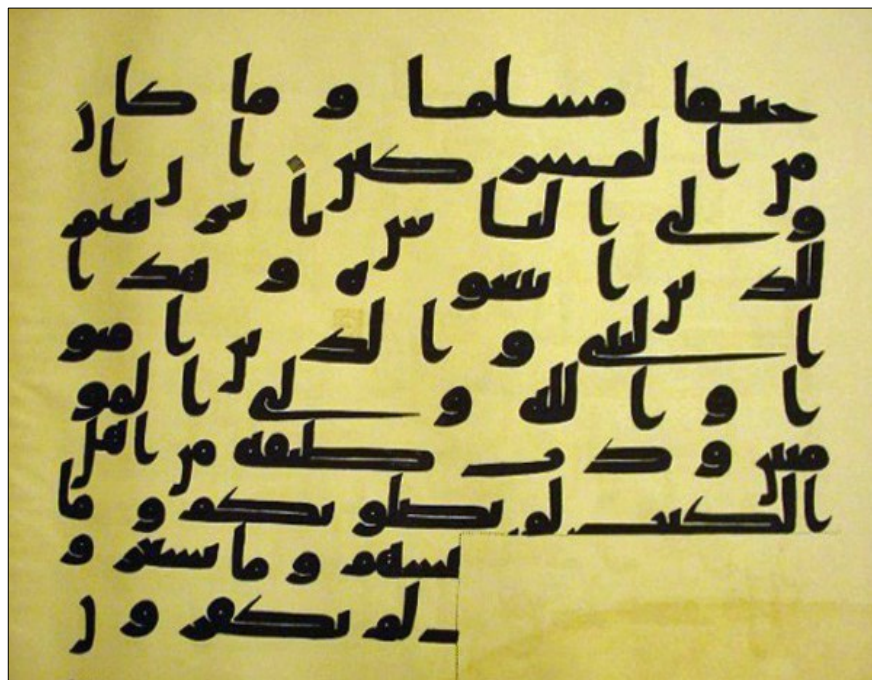 حنيفا مسلما و ما كان
من المشركين ان ا
ولى الناس بابرهيم
للذين اتبعوه و هذا
النبى و الذين امنو
ا و الله و لى المو
منين ودت طيفه من اهل
الكتب لو يضلونكم و ما
نفسهم و ما يشعرو
لم تكفرون